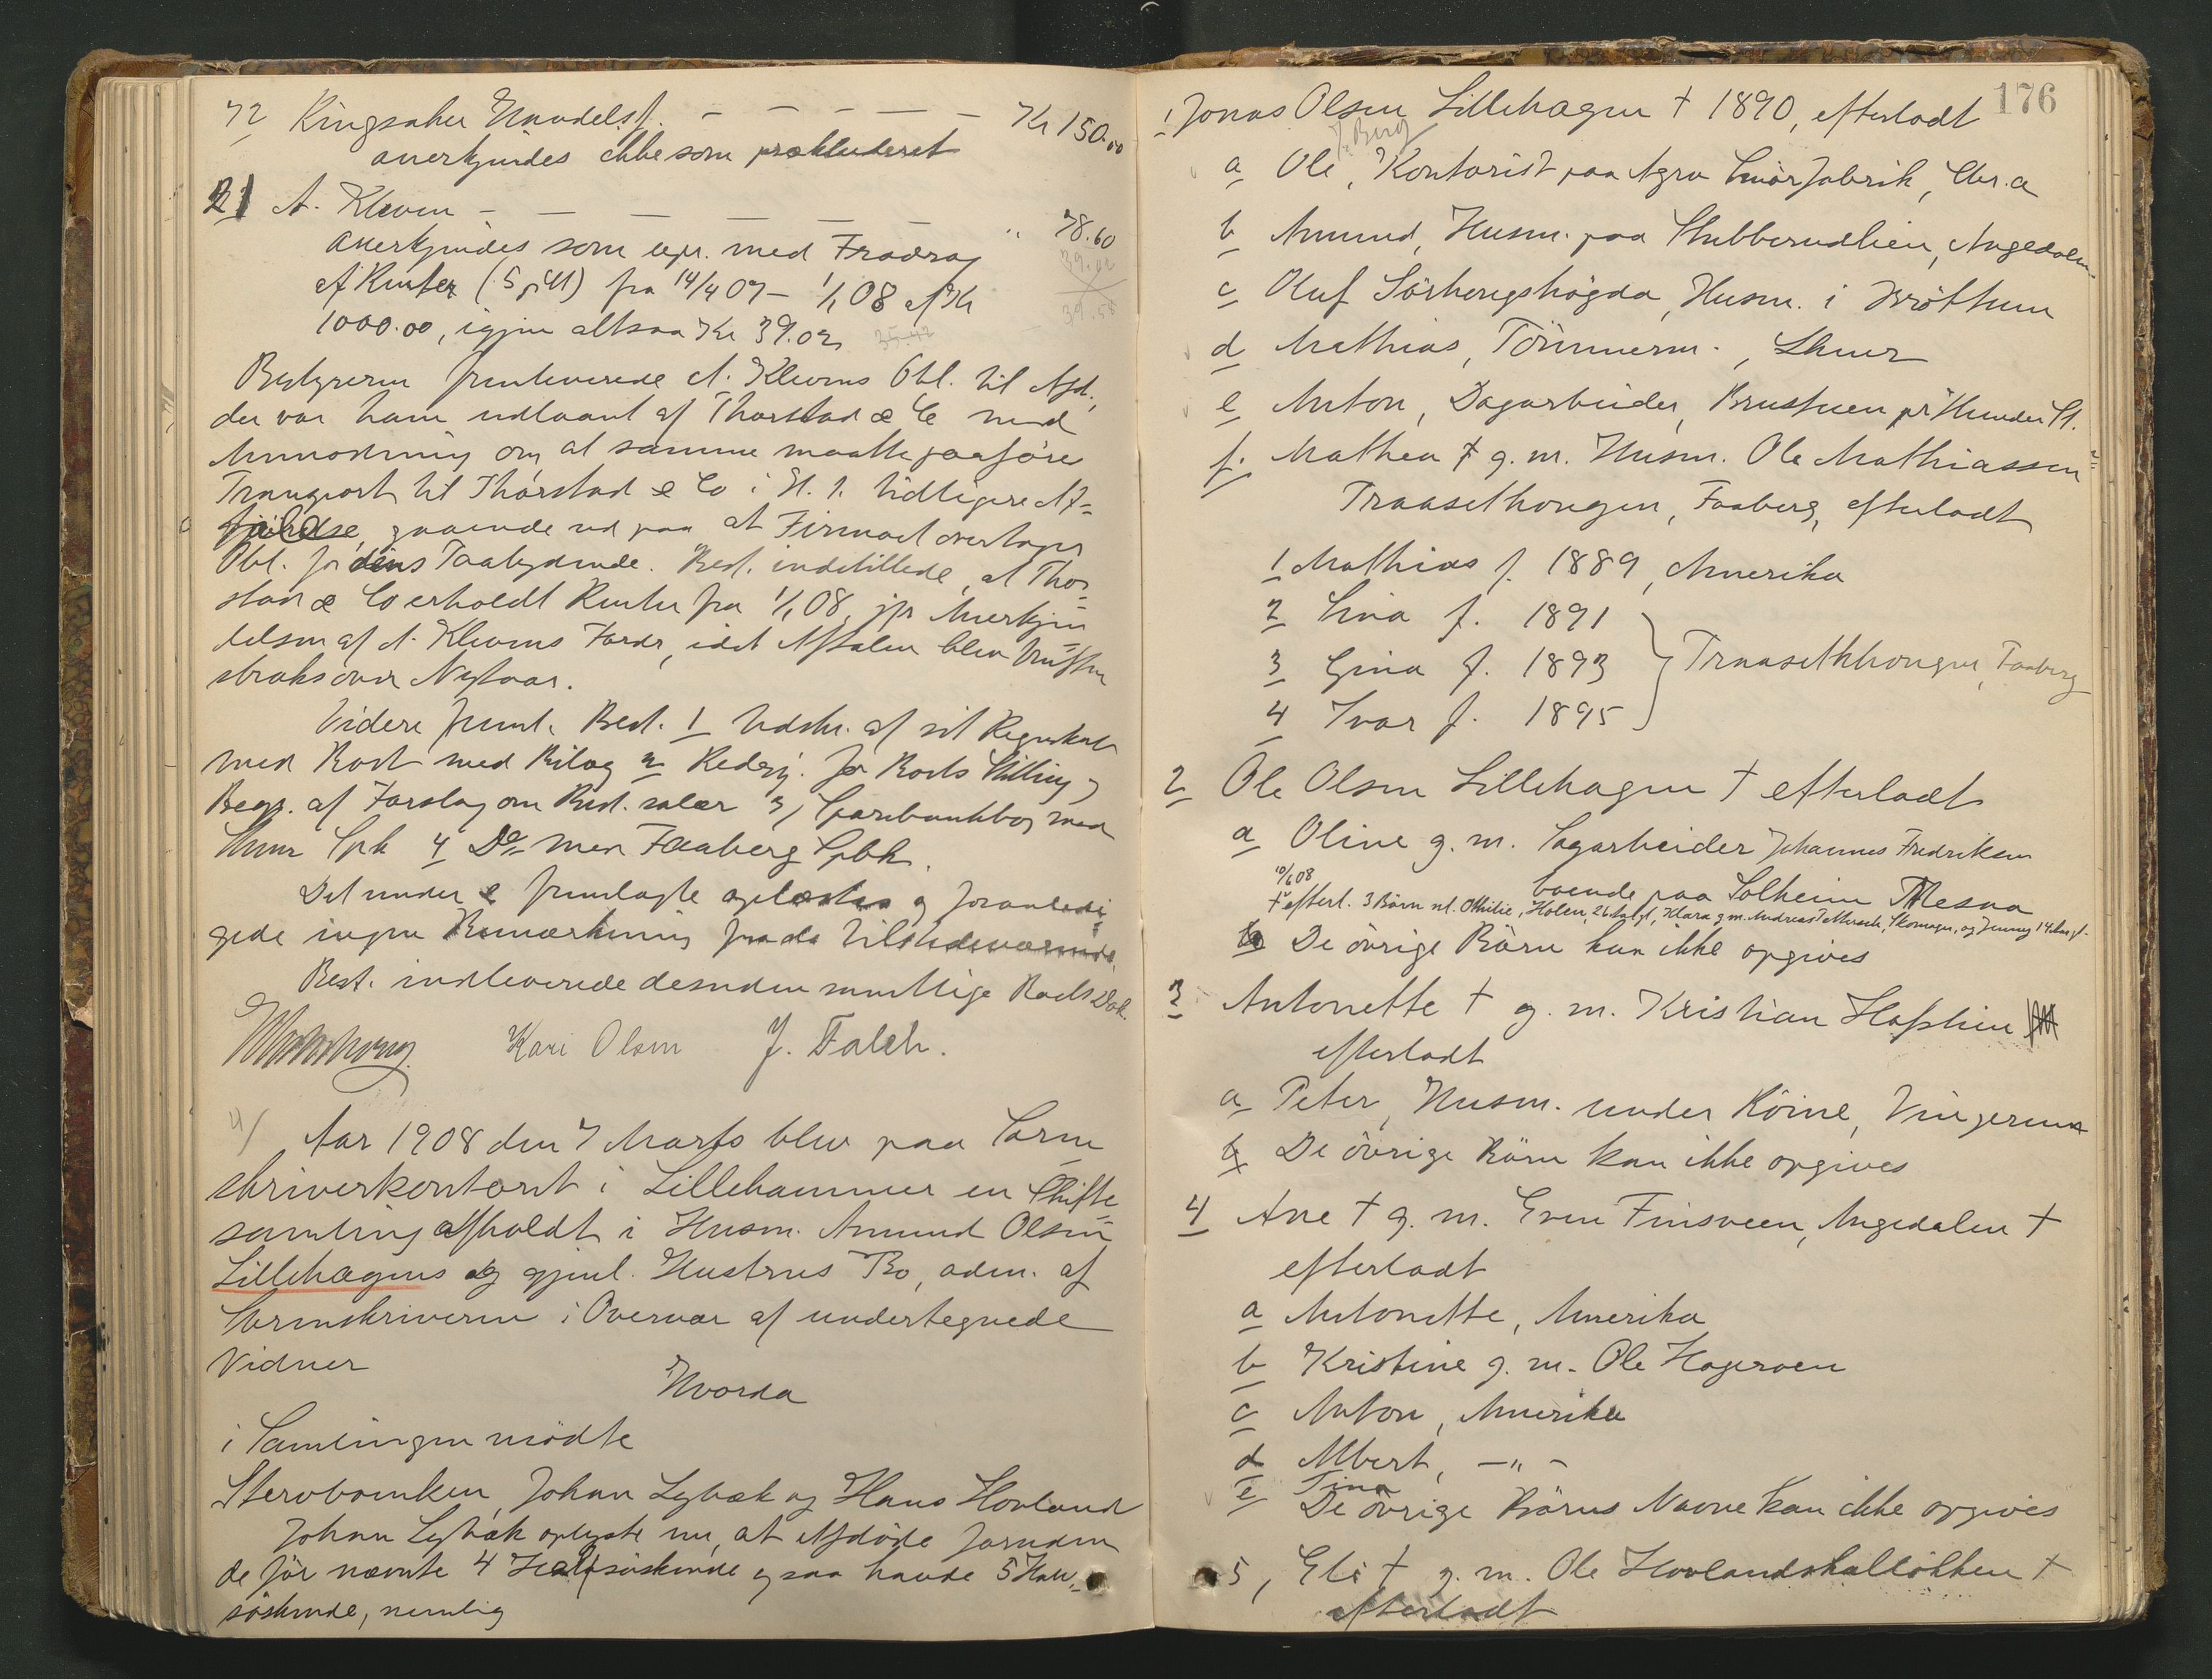 72 Ringsaker Handelsf. - - - - - Kr 150.00
anerkjendes ikke som prækluderet
21 A. Kleven - - - - - - " 78.60
anerkjendes som upr. med Fradrag 39.02
af Renter (5 pCt) fra 14/4 07 - 1/1 08 af Kr 39.58
1000.00, igjen altsaa Kr 39.02
Bestyreren fremleverede A. Klevens Obl. til Afd.,
der var ham udlaant af Thorstad & Co med
Anmodning om, at samme maatte paaføres
Transport til Thorstad & Co i H. t. tidligere Af-
gjørelse, gaaende ud paa at Firmaet overtager
Obl. for dens Paalydende. Best. indstillede, at Thor-
stad & Co erholdt Renter fra 1/1 08, jfr Anerkjen-
delsen af A. Klevens Fordr, idet Aftalen blev truffen
straks over Nytaar.
Videre freml. Best. 1 Udskr. af sit Regnskab
med Boet med Bilag 2 Redegj. for Boets Stilling og
Begr. af Forslag om Best. salær 3, Sparebankbog med
Hmr Spb 4 Do med Faaberg Spbk.
Det under 2 fremlagte oplæstes og foranledi-
gede ingen Bemærkning fra de tilstedeværende.
Best. indleverede desuden samtlige Boets Dok.
Kari Olsen J. Falch.
4/ Aar 1908 den 7 Marts blev paa Soren-
skriverkontoret i Lillehammer en Skifte-
samling afholdt i Husm. Amund Olsen
Lillehagens og gjenl. Hustrus Bo, adm. af
Sorenskriveren i Overvær af undertegnede
Vidner
Hvorda
i Samlingen mødte
Stervboenken, Johan Lybæk og Hans Hovland
Johan Lybæk oplyste nu, at Afdøde foruden
de før nævnte 4 Helsøskende ogsaa havde 5 Halv-
søskende, nemlig
176
1 Jonas Olsen Lillehagen † 1890, efterladt
J. Berg
a Ole, Kontorist paa Agra Smørfabrik, Chr.a
b Amund, Husm. paa Stubberudlien, Aagedalen
c Oluf Sørhougshøgda, Husm. i Brøttum
d Mathias, Tømmerm., Lhmr
e Anton, Dagarbeider, Brustuen pr Hunder St.
f. Mathea † g. m. Husm. Ole Mathiassen
Traasethougen, Faaberg, efterladt
1 Mathias f. 1889, Amerika
2 Lina f. 1891
3 Gina f. 1893 } Traasethhougen, Faaberg
4 Ivar f. 1895
2 Ole Olsen Lillehagen † efterladt
a Oline g. m. Sagarbeider Johannes Fredriksen
boende paa Solheim Mesna
10/6 08
† efterl. 3 Børn nl. Othilie, Holen, 26 Aar gl, Klara g. m. Andreas Skomager, og Jenny 14 Aar gl.
b De øvrige Børn kan ikke opgives
3 Antonette † g. m. Kristian Hafstien
efterladt
a Peter, Husm. under Køine, Vingerum
b De øvrige Børn kan ikke opgives
4 Ane † g. m. Even Finsveen, Aagedalen †
efterladt
a Antonette, Amerika
b Kristine g. m. Ole Hageroen
c Anton, Amerika
d Albert, - " -
e Tina
De øvrige Børns Navne kan ikke opgives
5, Eli † g. m. Ole Hovlandshalløkken †
efterladt